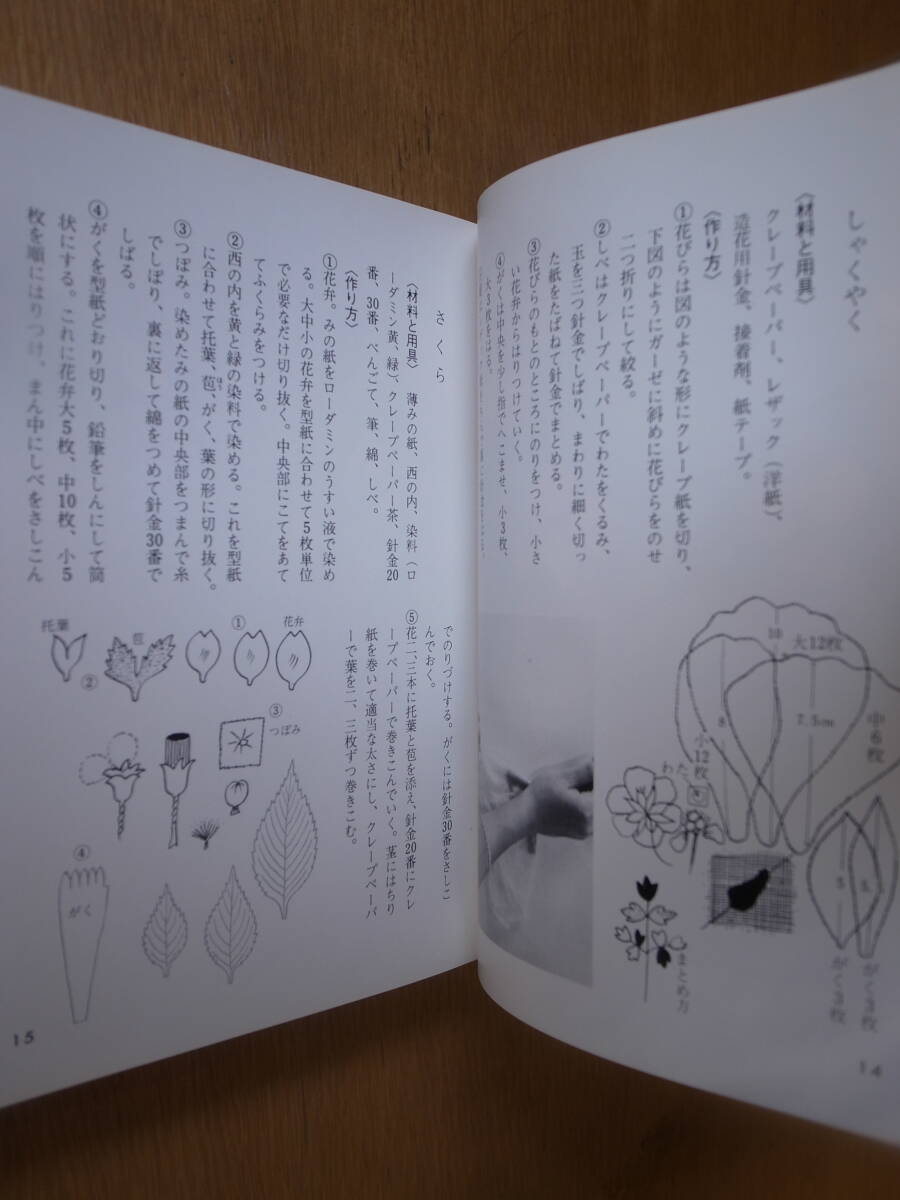 しゃくやく
〈材料と用具〉
クレープペーパー、レザック(洋紙)、
造花用針金、接着剤、紙テープ。
〈作り方〉
①花びらは図のような形にクレープ紙を切り、
下図のようにガーゼに斜めに花びらをのせ
二つ折りにして絞る。
②しべはクレープペーパーでわたをくるみ、
玉を三つ針金でしばり、まわりに細く切っ
た紙をたばねて針金でまとめる。
③花びらのもとのところにのりをつけ、小さ
い花弁からはりつけていく。
④がくは中央を少し指でへこませ、小3枚、
大3枚をはる。
大12枚
10
7.5cm
8
中6枚
小12枚
わた
5
がく3枚
がく3枚
まとめ方
14
さくら
〈材料と用具〉 薄みの紙、西の内、染料(ロ
ーダミン黄、緑)、クレープペーパー茶、針金20
番、30番、べんごて、筆、綿、しべ。
〈作り方〉
①花弁。みの紙をローダミンのうすい液で染め
る。大中小の花弁を型紙に合わせて5枚単位
で必要なだけ切り抜く。中央部にこてをあて
てふくらみをつける。
②西の内を黄と緑の染料で染める。これを型紙
に合わせて托葉、苞、がく、葉の形に切り抜く。
ほう
③つぼみ。染めたみの紙の中央部をつまんで糸
でしぼり、裏に返して綿をつめて針金30番で
しばる。
④がくを型紙どおり切り、鉛筆をしんにして筒
状にする。これに花弁大5枚、中10枚、小5
枚を順にはりつけ、まん中にしべをさしこん
でのりづけする。がくには針金30番をさしこ
んでおく。
⑤花二、三本に托葉と苞を添え、針金20番にクレ
ープペーパーで巻きこんでいく。茎にはちり
紙を巻いて適当な太さにし、クレープペーパ
ーで葉を二、三枚ずつ巻きこむ。
花弁
①
苞
托葉
②
③
つぼみ
④
がく
15